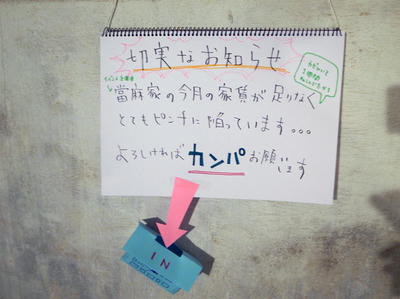 切実なお知らせ
當麻家の今月の家賃が足りなく
とてもピンチに陥っています...
よろしければカンパお願いします
IN